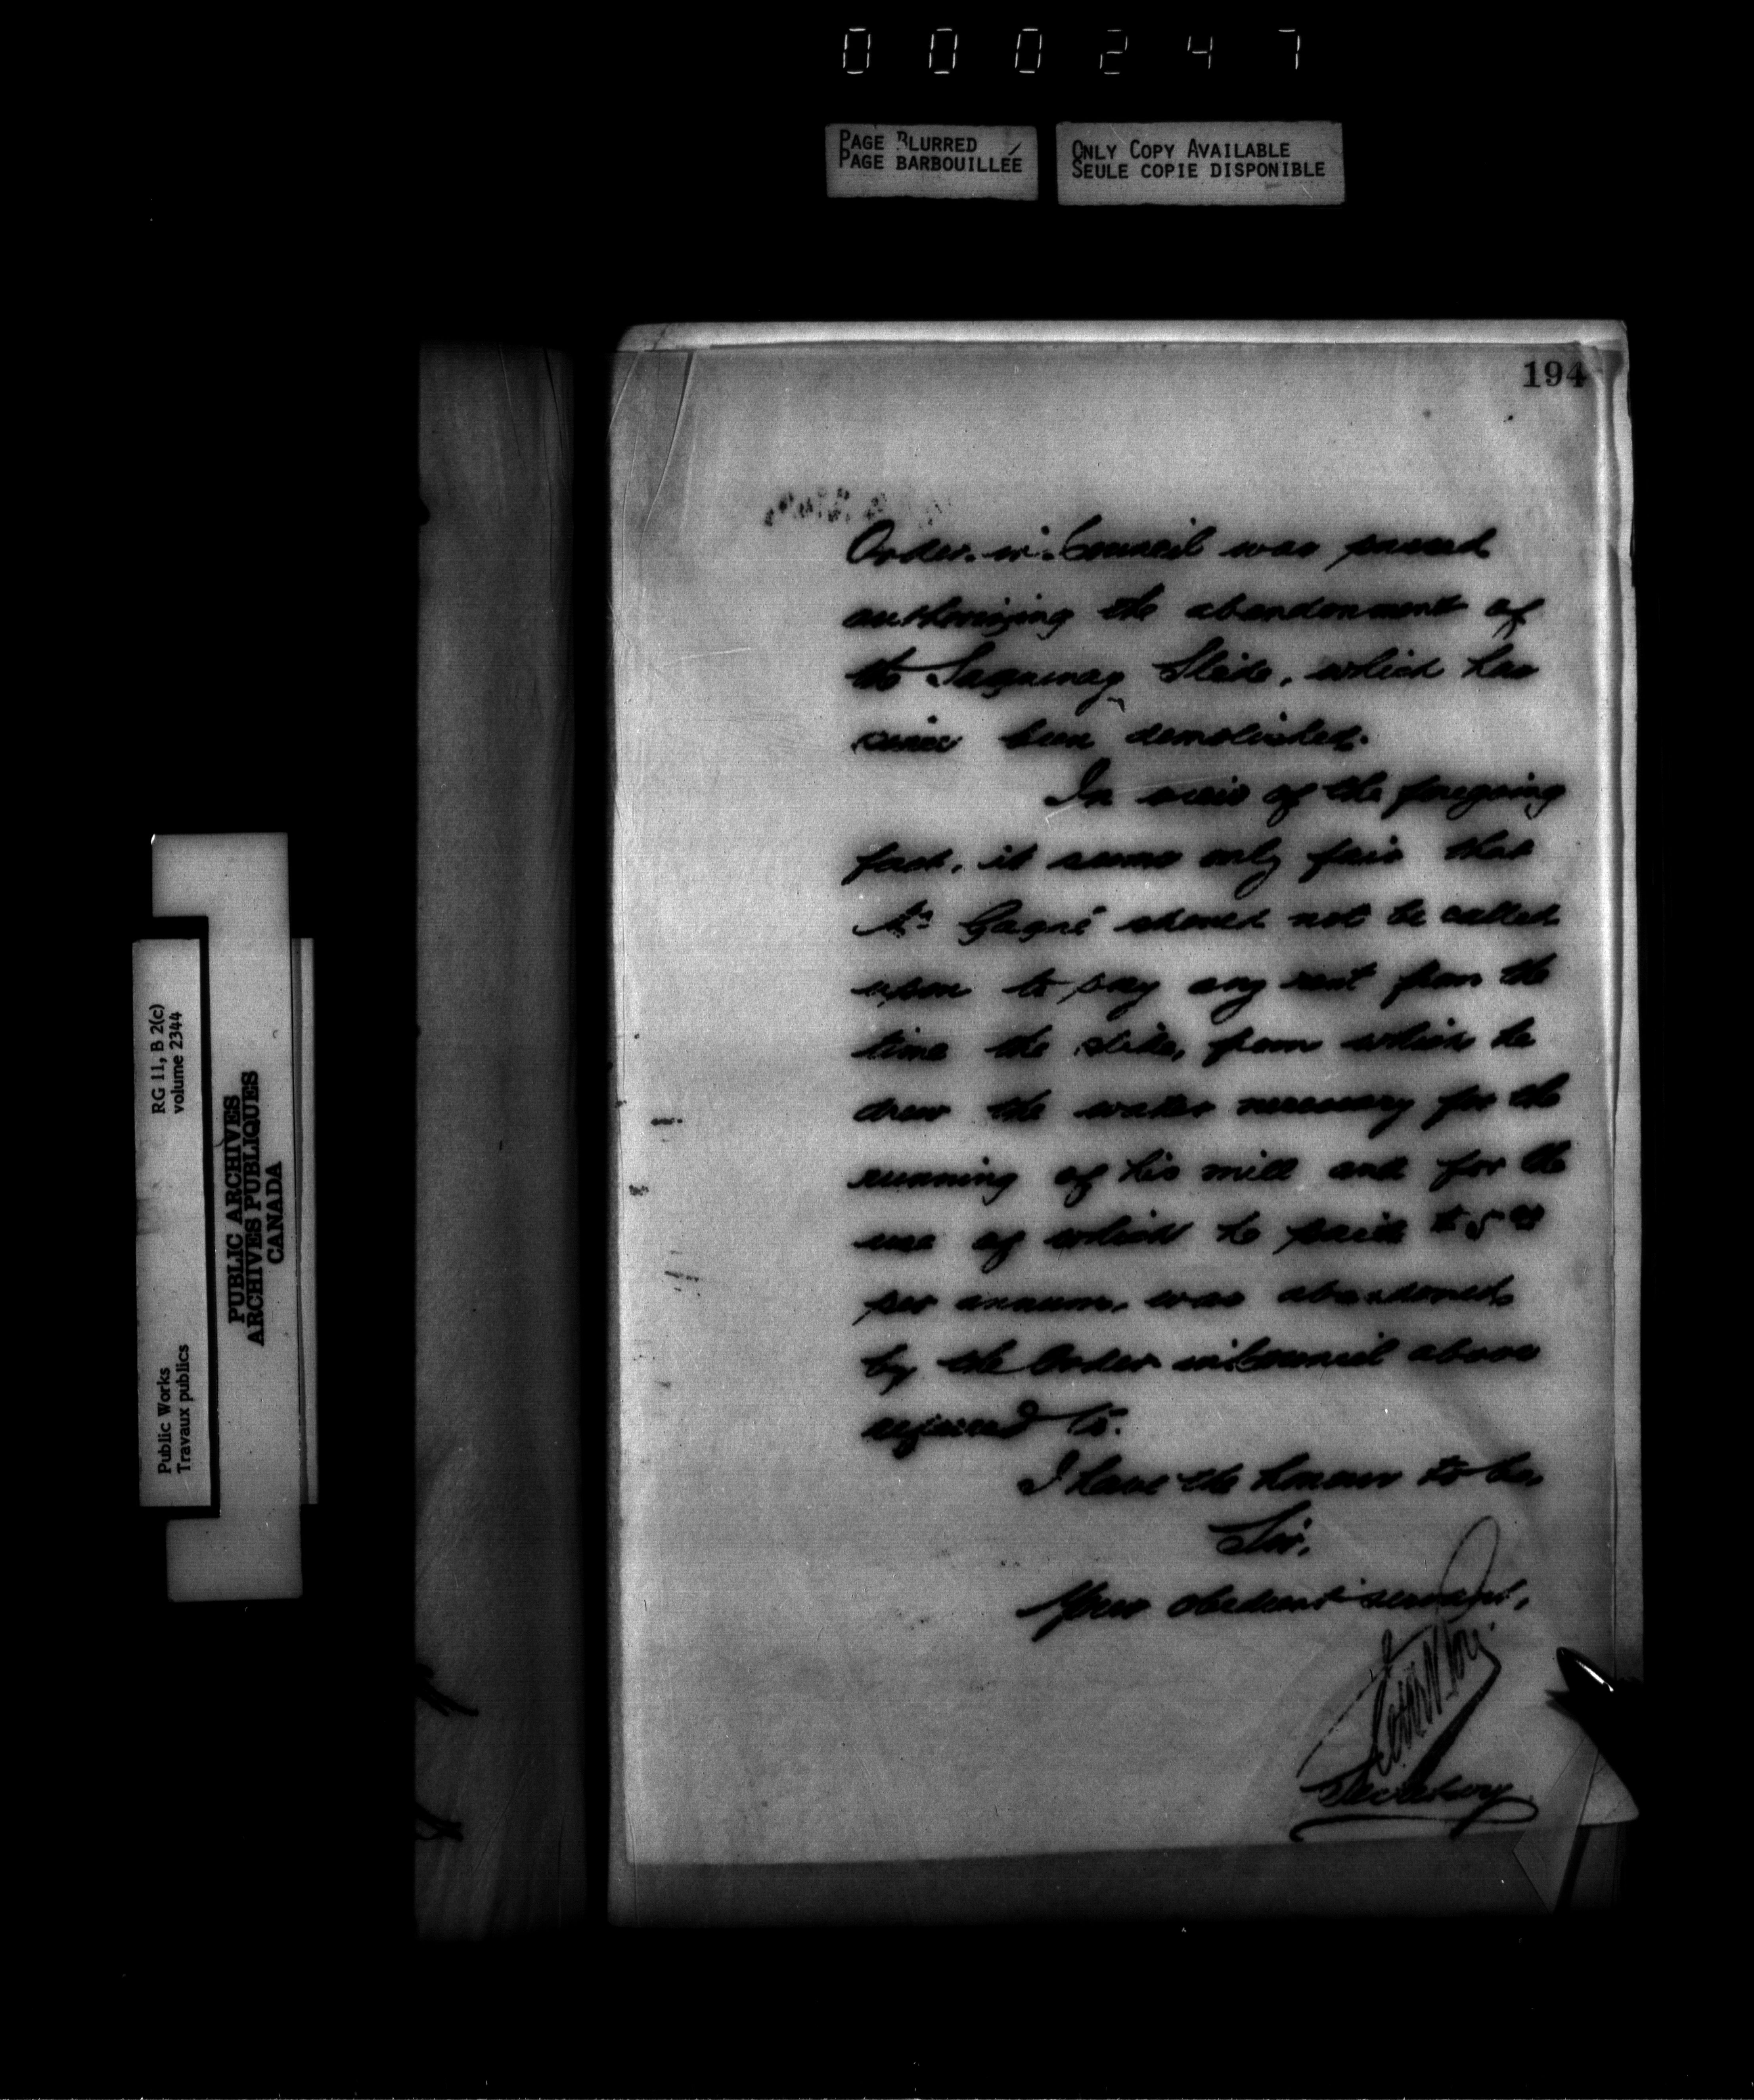 000247
PAGE BLURRED
PAGE BARBOUILLÉE
ONLY COPY AVAILABLE
SEULE COPIE DISPONIBLE
194
Order-in-Council was passed
authorizing the abandonment of
the Saguenay Slide, which has
since been demolished.
In view of the foregoing
fact, it seems only fair that
Mr Gagné should not be called
upon to pay any rent from the
time the slide, from which he
drew the water necessary for the
running of his mill and for the
use of which he paid
per annum, was abandoned
by the Order in Council above
referred to.
I have the honour to be,
Sir,
Your obedient servant,
Secretary
RG 11, B 2(c)
volume 2344
Public Works
Travaux publics
PUBLIC ARCHIVES
ARCHIVES PUBLIQUES
CANADA